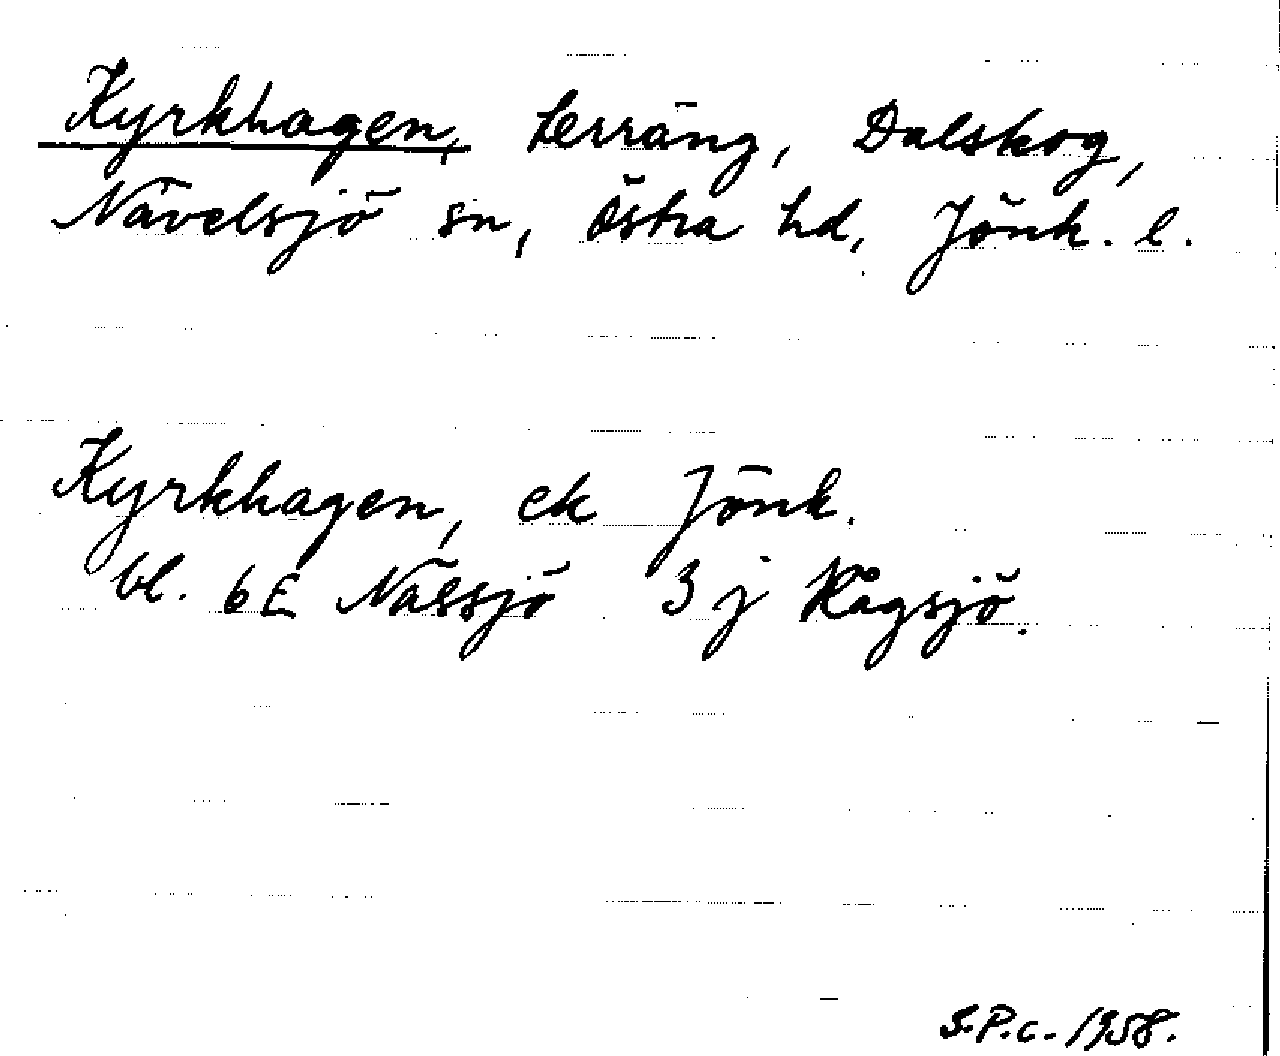 Kyrkhagen, terräng, Dalskog,
Nävelsjö sn, Östra hd, Jönk. l.
Kyrkhagen, ek Jönk.
bl. 6E Nässjö 3j Rågsjö.
S.P.c. 1958.